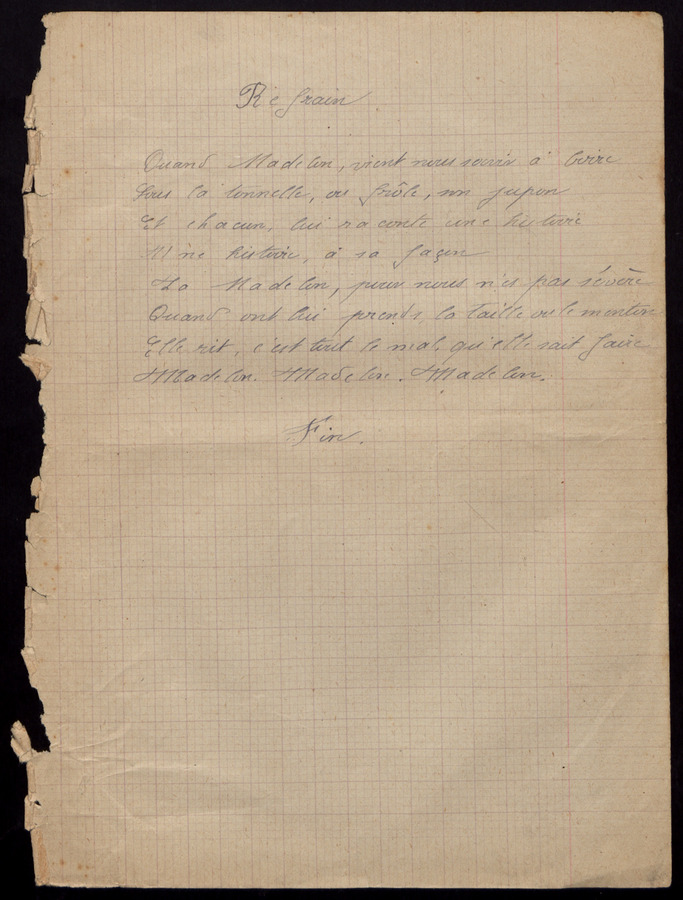 Réfrain
Quand Madelon, vient nous servir à boire
Sous la tonnelle, on frôle, son jupon
Et chacun, lui raconte une histoire
Une histoire, à sa façon
La Madelon, pour nous n'es pas sévère
Quand ont lui prends la taille ou le menton
Elle rit, c'est tout le mal qu'elle sait faire
Madelon. Madelon. Madelon.
Fin.